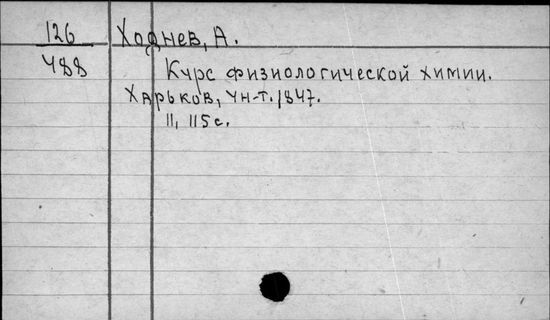 126 Ходнев, А.
488 Курс физиологической химии.
Харьков, Ун-т. 1847.
II, 115 с.